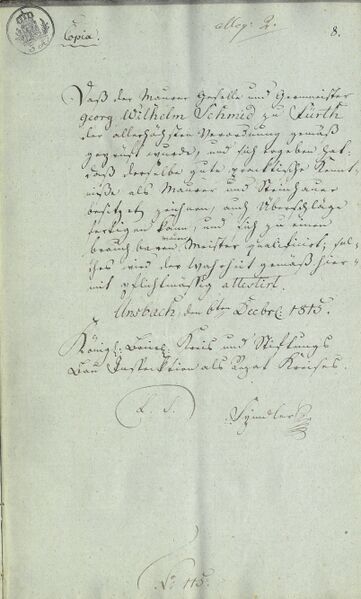 Copia.
alleg. 2.
8.
Daß der Maurer Geselle und Germeister
Georg Wilhelm Schmid zu Fürth
der allerhöchsten Verordnung gemäß
geprüft wurde, und sich ergeben hat,
daß derselbe gute praktische Kennt-
niße als Maurer und Steinhauer
besitzet, zeichnen, auch Überschläge
fertigen kann, und sich zu einem
brauchbaren Meister qualificirt; sol-
ches wird der Wahrheit gemäß hier-
mit pflichtmäsig attestirt.
Ansbach, den 6ten Decbr. 1815.
Königl. Baier. Kreis und Stiftungs
Bau Inspecktion als Rezat Kreises.
L. S.
No 115.